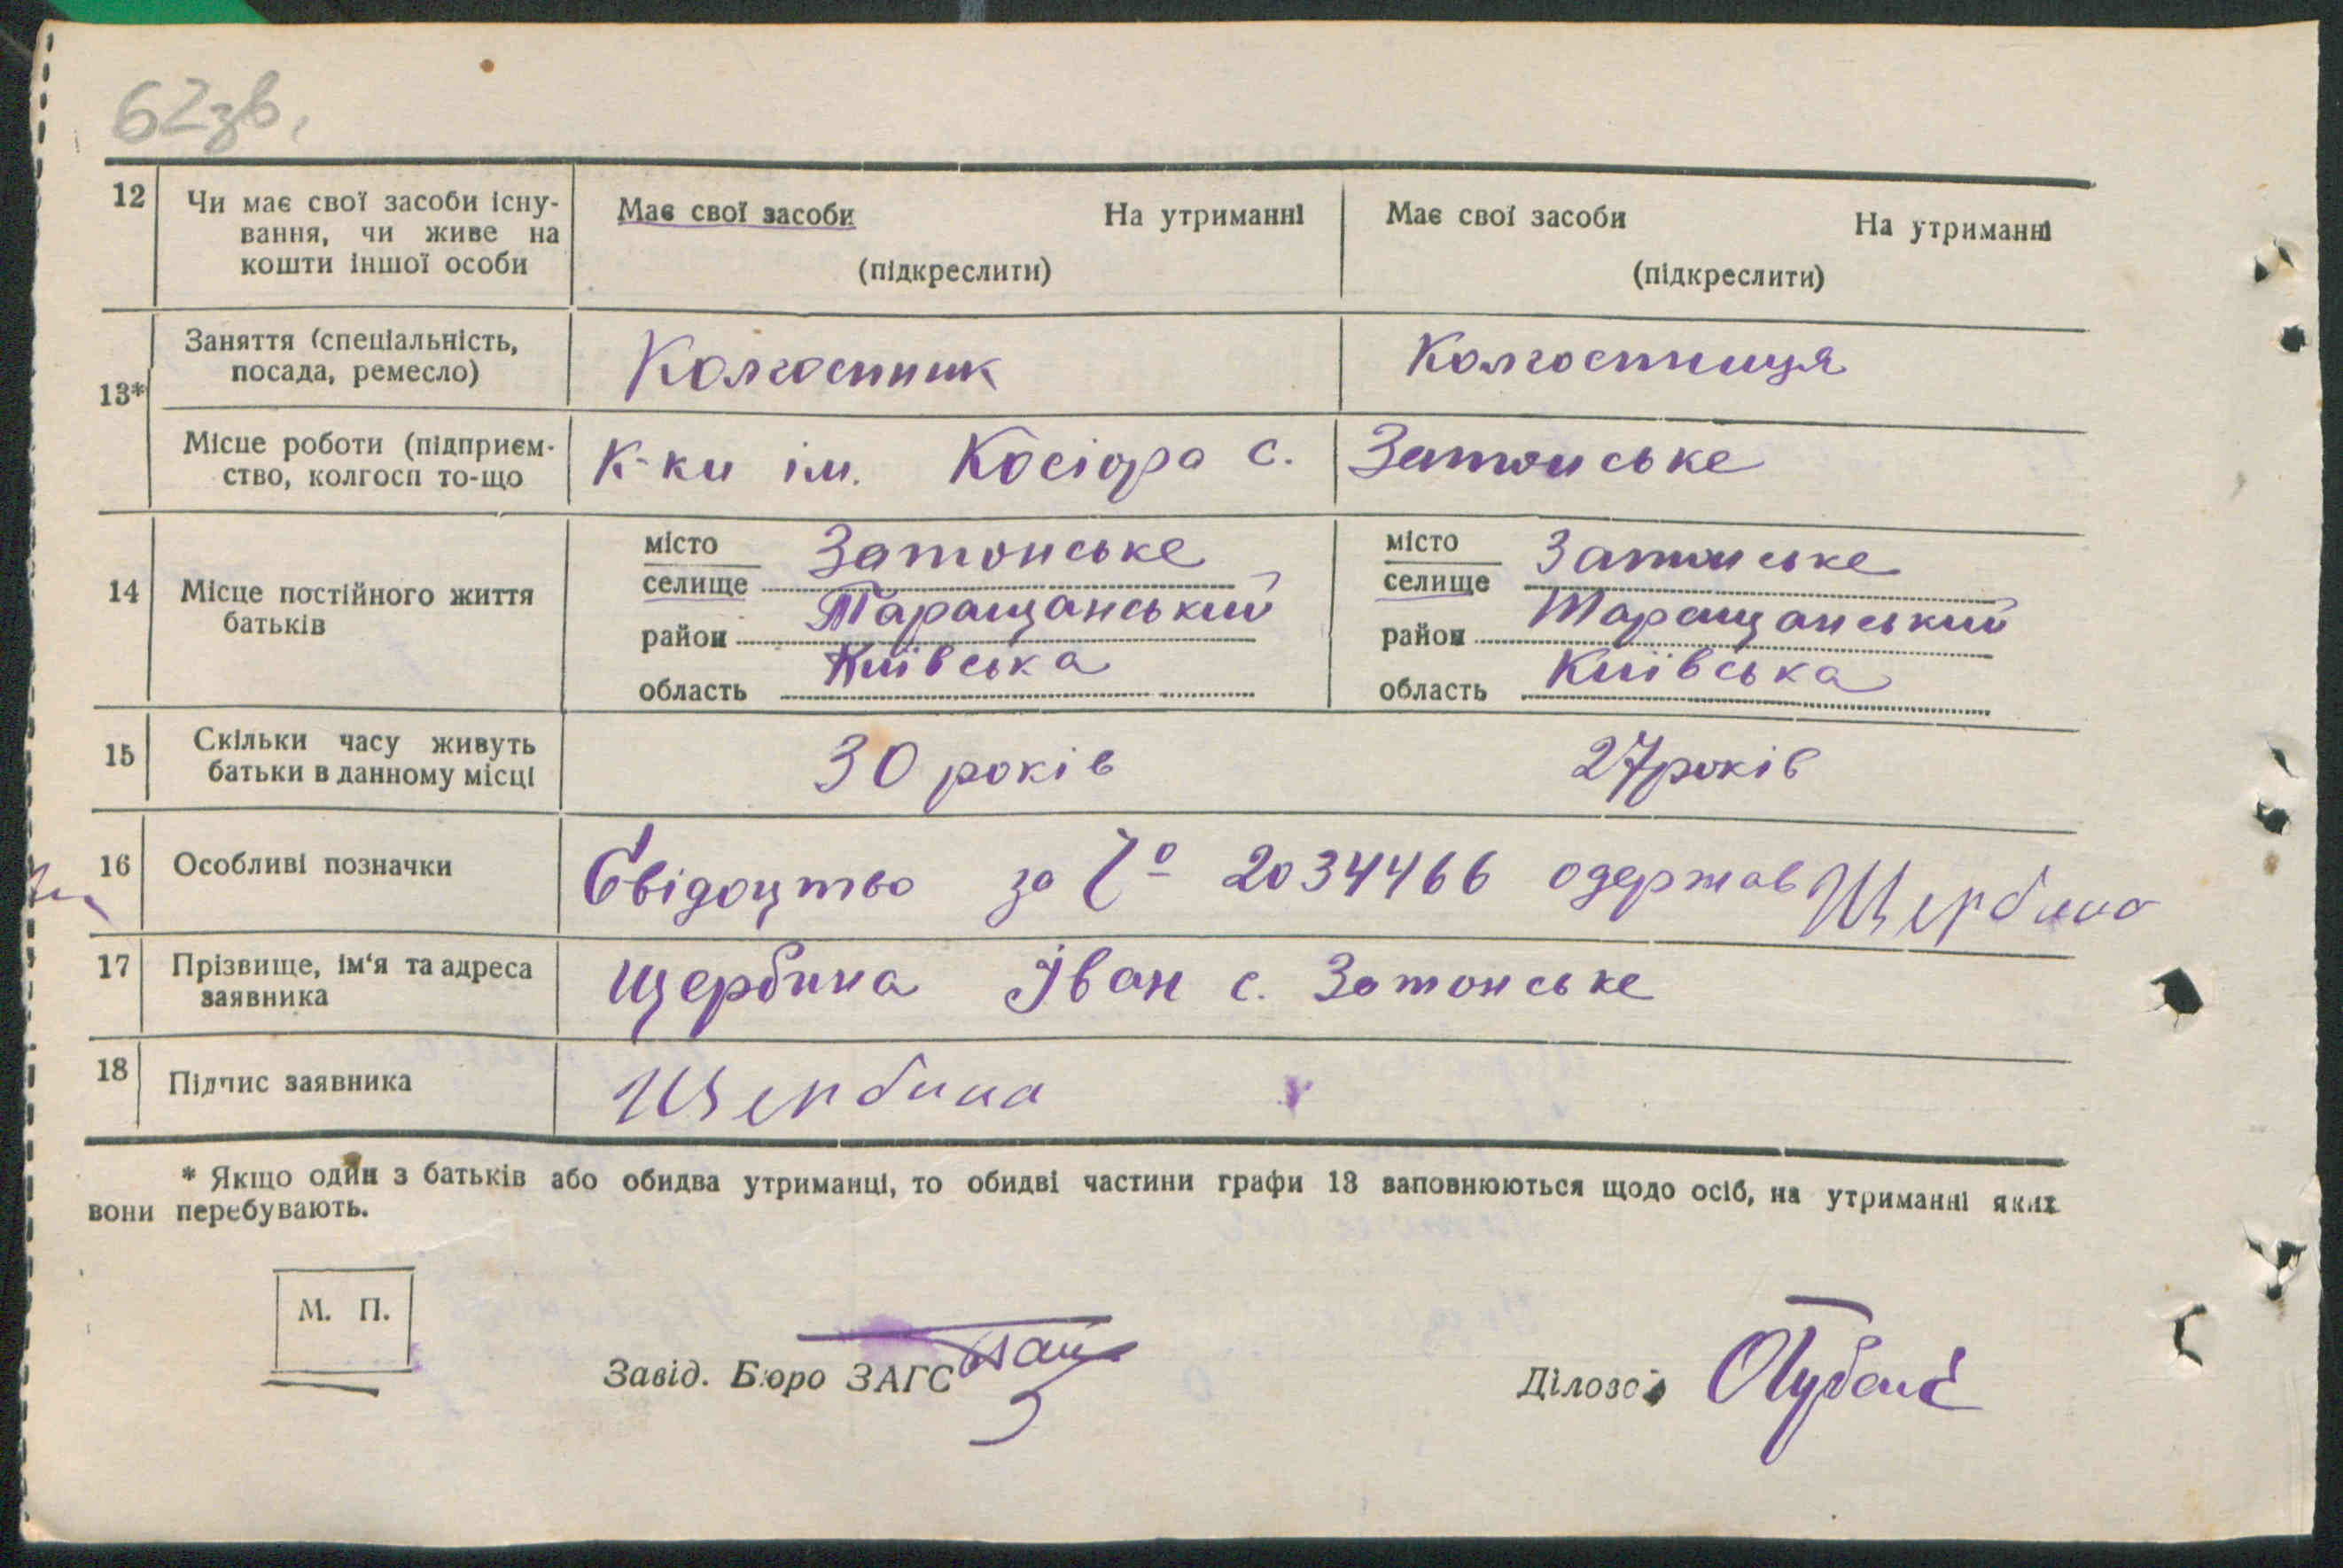 62зв.
12 Чи має свої засоби існу- Має свої засоби На утриманні Має свої засоби На утриманні
вання, чи живе на
кошти іншої особи (підкреслити) (підкреслити)
13* Заняття (спеціальність, Колгоспник Колгоспниця
посада, ремесло)
Місце роботи (підприєм- К-ки ім. Косіора с. Затонське
ство, колгосп то-що
14 Місце постійного життя батьків
місто Затонське місто Затонське
селище селище
район Таращанський район Таращанський
область Київська область Київська
15 Скільки часу живуть 30 років 27 років
батьки в данному місці
16 Особливі позначки Свідоцтво за № 2034466 одержав Щербина
17 Прізвище, ім'я та адреса Щербина Іван с. Затонське
заявника
18 Підпис заявника Щербина
* Якщо один з батьків або обидва утриманці, то обидві частини графи 13 заповнюються щодо осіб, на утриманні яких
вони перебувають.
М. П.
Завід. Бюро ЗАГС Діловод